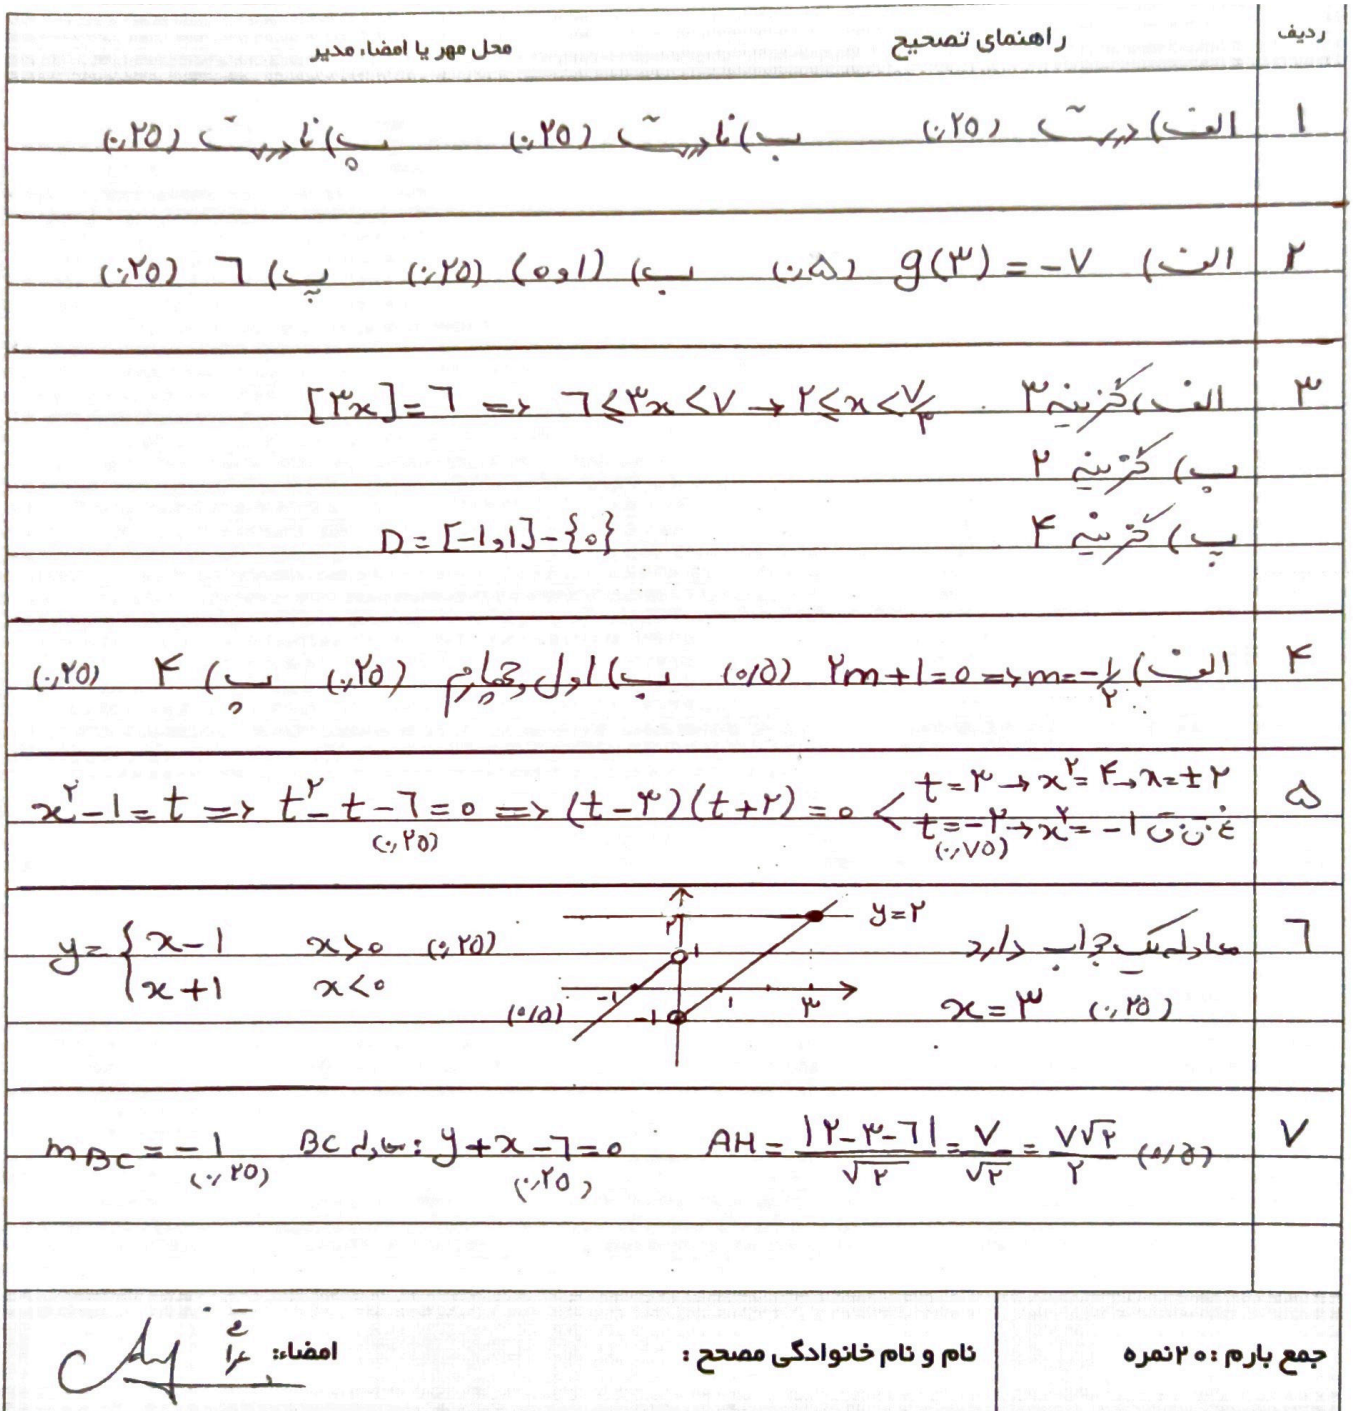 ردیف راهنمای تصحیح محل مهر یا امضاء مدیر
۱ الف) درست (۰٫۲۵) ب) نادرست (۰٫۲۵) پ) نادرست (۰٫۲۵)
۲ الف) g(۳) = -۷ (۰٫۵) ب) (۱و۰) (۰٫۲۵) پ) ۶ (۰٫۲۵)
۳ الف) گزینه ۳ [۳x]=۶ => ۶≤۳x<۷ → ۲≤x<۷/۳
ب) گزینه ۲
پ) گزینه ۴ D = [-۱,۱]-{۰}
۴ الف) ۲m+۱=۰ => m=-۱/۲ (۰/۵) ب) اول و چهارم (۰٫۲۵) پ) ۴ (۰٫۲۵)
۵ x²-۱=t => t²-t-۶=۰ => (t-۳)(t+۲)=۰ < t=۳ → x²=۴ → x=±۲
(۰٫۲۵) t=-۲ → x²=-۱ غ ق ق
(۰٫۷۵)
۶ معادله یک جواب دارد y=۲ ۲ ۱ y={ x-۱ x>۰ (۰٫۲۵)
x=۳ (۰٫۲۵) ۳ ۱ -۱ -۱ (۰/۵) x+۱ x<۰
۷ m BC = -۱ (۰٫۲۵) BC معادله: y+x-۶=۰ (۰٫۲۵) AH = |۲-۳-۶|/√۲ = ۷/√۲ = ۷√۲/۲ (۰/۵)
جمع بارم : ۲۰ نمره نام و نام خانوادگی مصحح : امضاء: